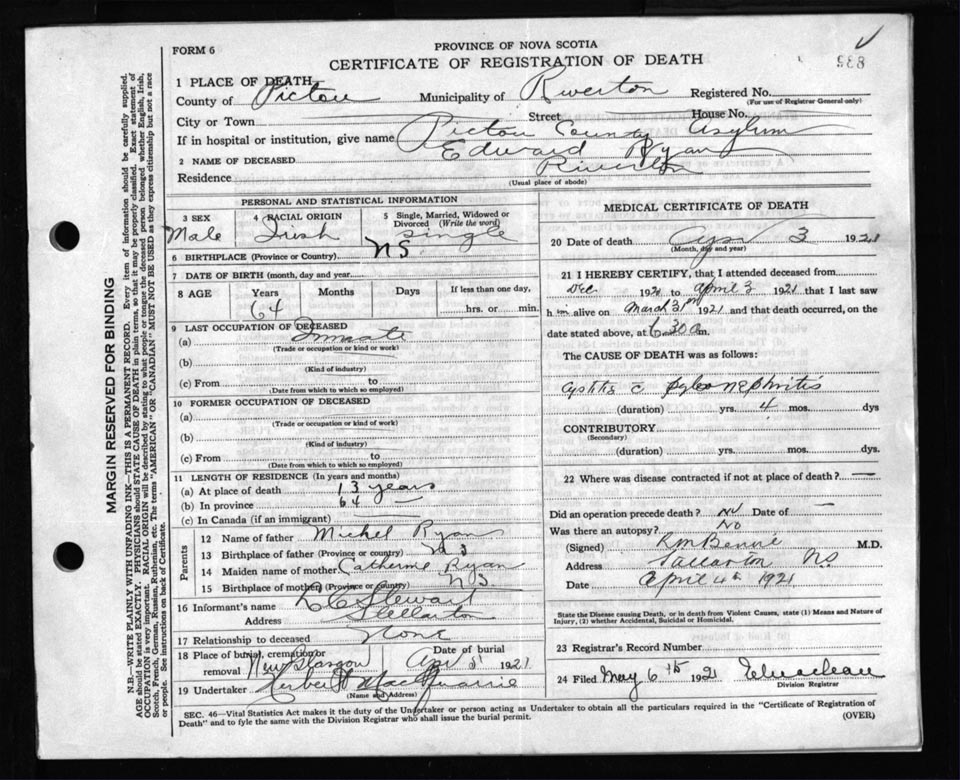 FORM 6
PROVINCE OF NOVA SCOTIA
CERTIFICATE OF REGISTRATION OF DEATH
1 PLACE OF DEATH
County of Pictou Municipality of Riverton Registered No.
(For use of Registrar General only)
City or Town Street House No.
If in hospital or institution, give name Pictou County Asylum
2 NAME OF DECEASED Edward Ryan
Residence Riverton
(Usual place of abode)
PERSONAL AND STATISTICAL INFORMATION
3 SEX Male
4 RACIAL ORIGIN Irish
5 Single, Married, Widowed or Divorced (Write the word) Single
6 BIRTHPLACE (Province or Country) NS
7 DATE OF BIRTH (month, day and year)
8 AGE Years 64 Months Days If less than one day, hrs. or min.
9 LAST OCCUPATION OF DECEASED
(a) Inmate
(Trade or occupation or kind or work)
(b)
(Kind of industry)
(c) From to
(Date from which to which so employed)
10 FORMER OCCUPATION OF DECEASED
(a)
(Trade or occupation or kind of work)
(b)
(Kind of industry)
(c) From to
(Date from which to which so employed)
11 LENGTH OF RESIDENCE (In years and months)
(a) At place of death 13 years
(b) In province 64
(c) In Canada (if an immigrant)
Parents
12 Name of father Michel Ryan
13 Birthplace of father (Province or country) NS
14 Maiden name of mother Catherine Ryan
15 Birthplace of mother (Province or country) NS
16 Informant's name Stewart
Address Stellarton
17 Relationship to deceased None
18 Place of burial, cremation or removal New Glasgow Date of burial Apr 5 1921
19 Undertaker Herbert MacQuarrie
(Name and Address)
MEDICAL CERTIFICATE OF DEATH
20 Date of death Apr 3 1921
(Month, day and year)
21 I HEREBY CERTIFY, that I attended deceased from
Dec 1920 to April 3 1921 that I last saw
him alive on March 31st 1921 and that death occurred, on the
date stated above, at 6.30 a.m.
The CAUSE OF DEATH was as follows:
Cystitis c Pyleo nephritis
(duration) yrs. 4 mos. dys
CONTRIBUTORY
(Secondary)
(duration) yrs. mos. dys.
22 Where was disease contracted if not at place of death? —
Did an operation precede death? No Date of —
Was there an autopsy? No
(Signed) M.D.
Address Stellarton NS
Date April 4th 1921
State the Disease causing Death, or in death from Violent Causes, state (1) Means and Nature of
Injury, (2) whether Accidental, Suicidal or Homicidal.
23 Registrar's Record Number
24 Filed May 6th 1921
Division Registrar
SEC. 46—Vital Statistics Act makes it the duty of the Undertaker or person acting as Undertaker to obtain all the particulars required in the "Certificate of Registration of
Death" and to fyle the same with the Division Registrar who shall issue the burial permit. (OVER)
MARGIN RESERVED FOR BINDING
N.B.—WRITE PLAINLY WITH UNFADING INK—THIS IS A PERMANENT RECORD. Every item of information should be carefully supplied.
AGE should be stated EXACTLY. PHYSICIANS should STATE CAUSE OF DEATH in plain terms, so that it may be properly classified. Exact statement of
OCCUPATION is very important. RACIAL ORIGIN will be described by stating to what people or tongue the deceased person belonged whether English, Irish,
Scotch, French, German, Russian, Ruthenian, etc. The terms "AMERICAN" OR "CANADIAN" MUST NOT BE USED as they express citizenship but not a race
or people. See instructions on back of Certificate.